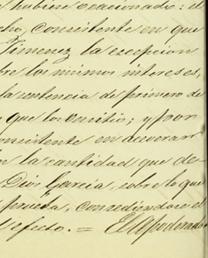 hubiere ocasionado: el
cho, consistente en que
Jimenez la excepcion
bre los mismos intereses,
la sentencia de primero de
que los emitio; y por
consistente en
n la cantidad que de-
Dios Garcia, sobre lo que
prueba, concediendose el
efecto. = El Apoderado